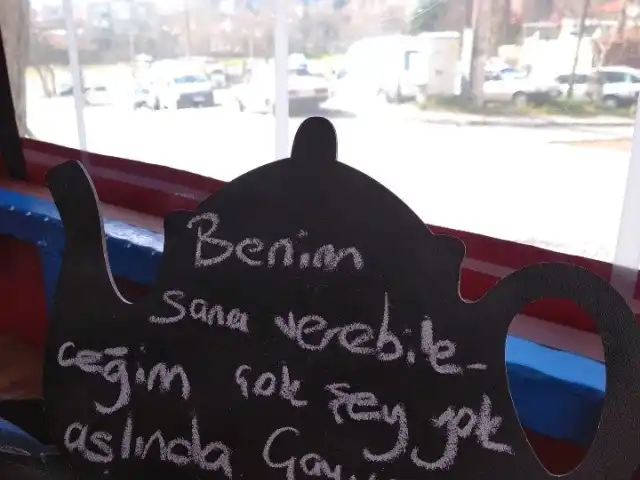 Benim
sana verebile-
ceğim çok şey yok
aslında Çay